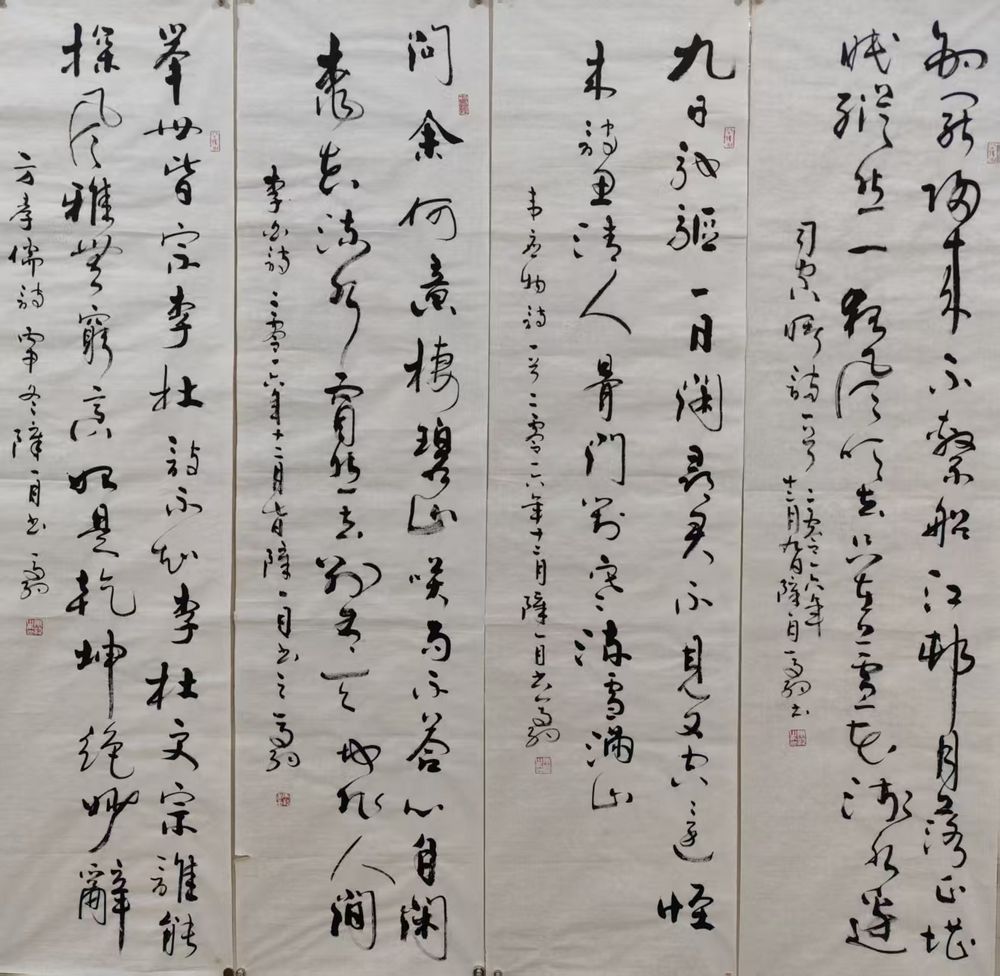 釣罷歸來不繫船江邨月落正堪
眠縱然一夜風吹去只在蘆花淺水邊
司空曙詩一首 二零一六年
十二月九日障一目書
九日馳驅一日閑尋君不見又空還怪
來詩思清人骨門對寒流雪滿山
韋應物詩一首二零一六年十二月障一目書
問余何意棲碧山笑而不答心自閑
桃花流水窅然去別有天地非人間
李白詩二零一六年十二月七日障一目書之
舉世皆宗李杜詩不知李杜更宗誰能
探風雅無窮意始是乾坤絕妙辭
方孝儒詩丙申冬障一目書